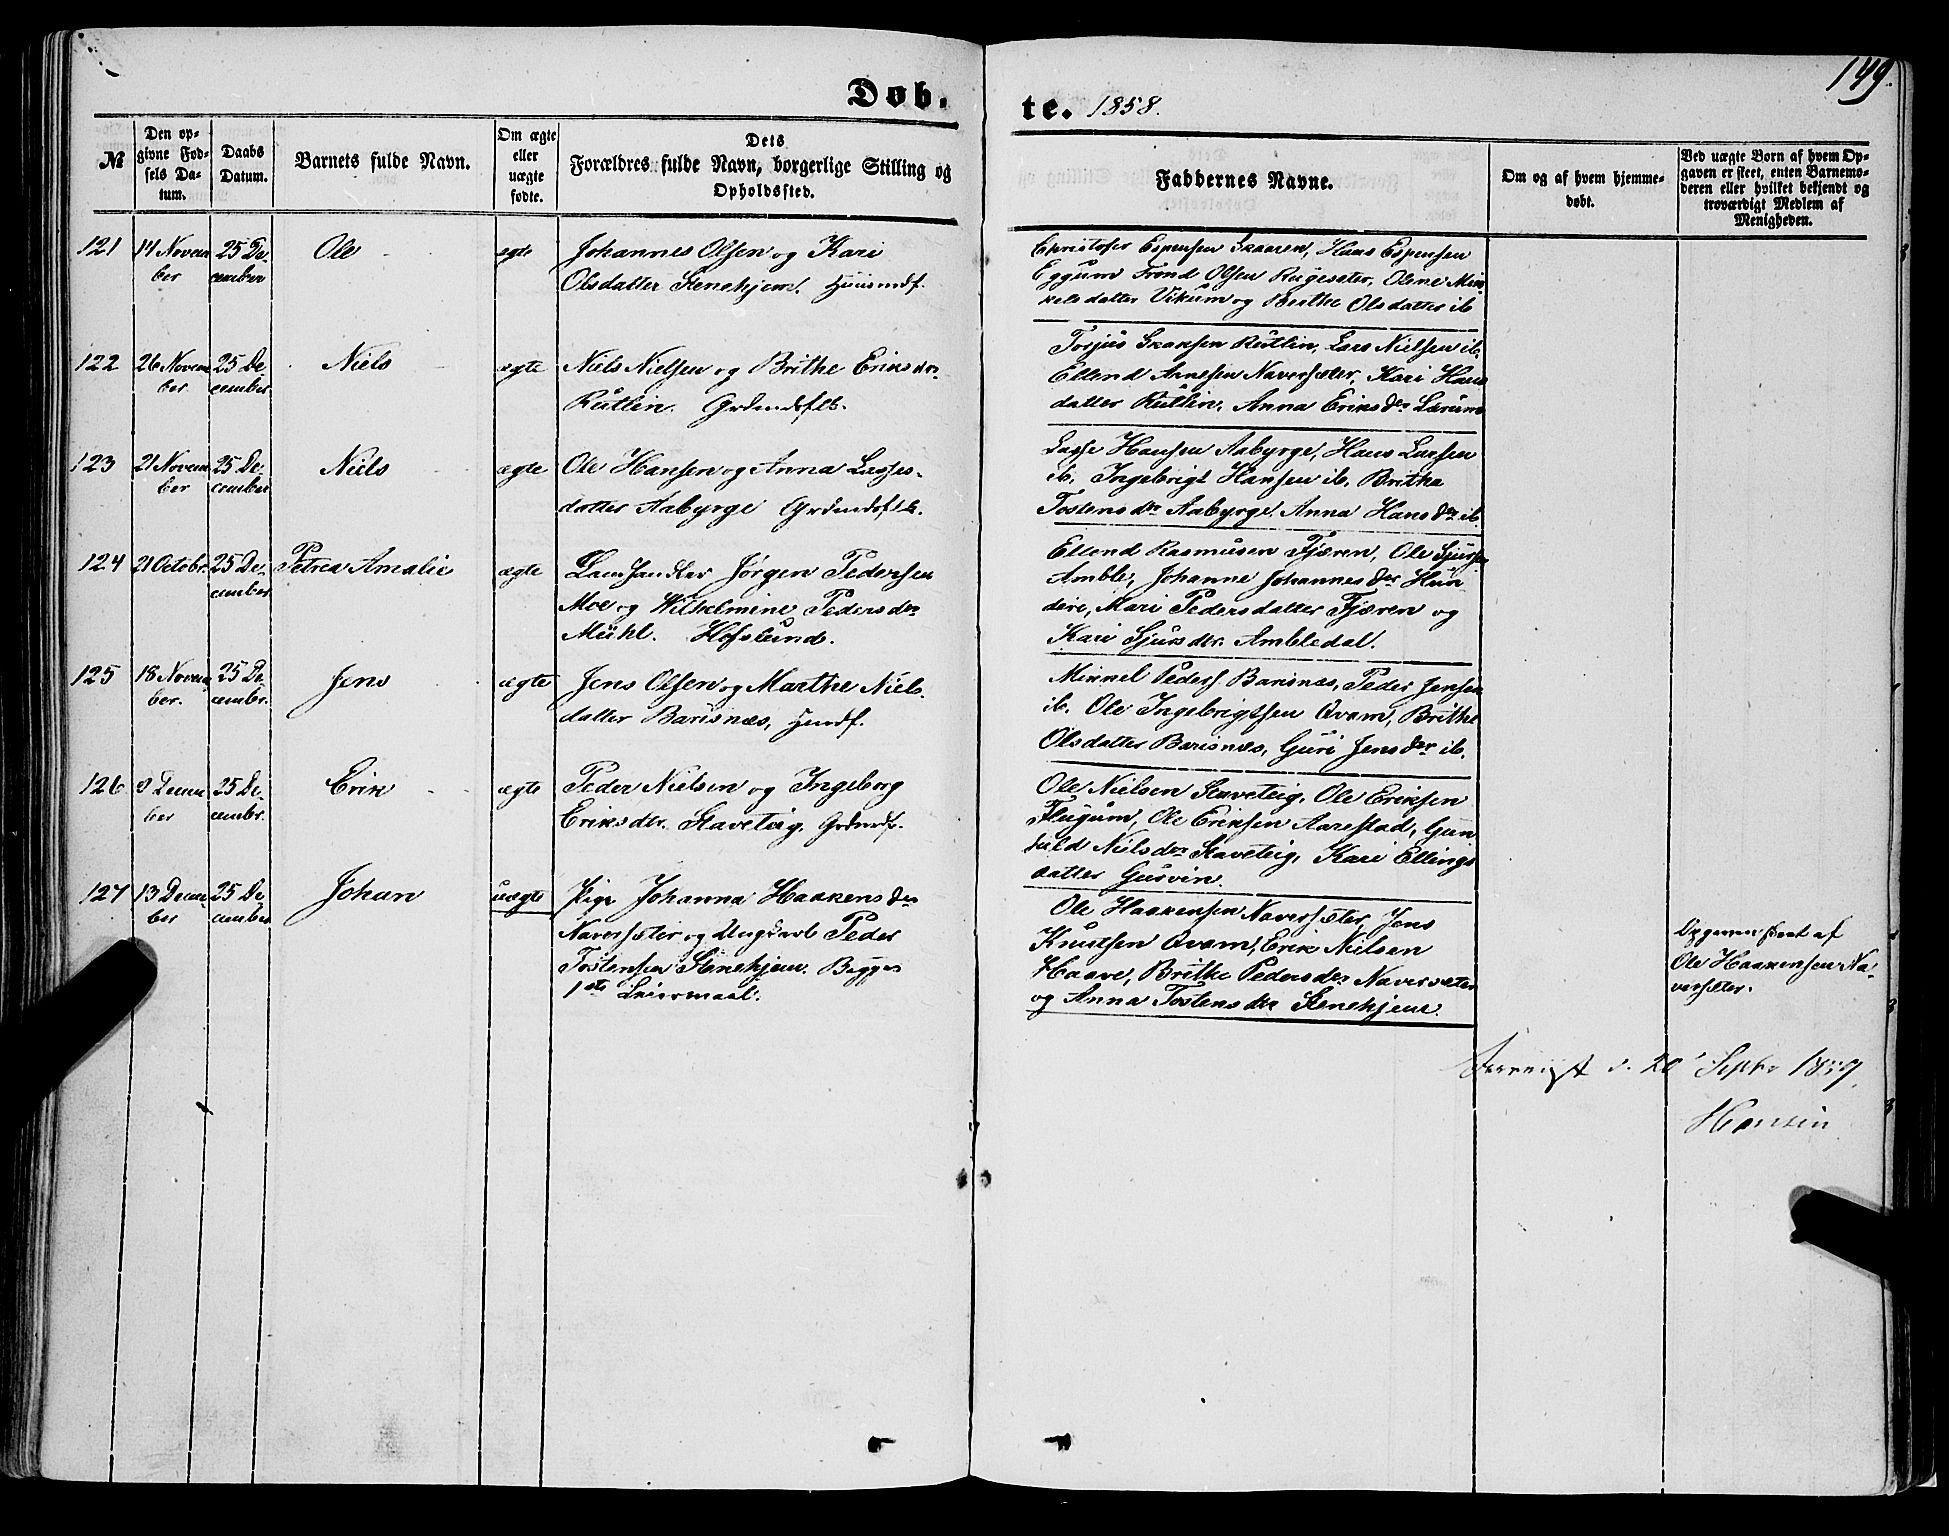 149.
Døb.
te. 1858.
№
Den op-
givne Fød-
sels Da-
tum.
Daabs
Datum.
Barnets fulde Navn.
Om ægte
eller
uægte
fødte.
Dets
Forældres fulde Navn, borgerlige Stilling og
Opholdssted.
Faddernes Navne.
Om og af hvem hjemme-
døbt.
Ved uægte Børn af hvem Op-
gaven er skeet, enten Barnemo-
deren eller hvilket bekjendt og
troværdigt Medlem af
Menigheden.
121
14 Novem
ber
25 De-
cember
Ole
ægte
Johannes Olsen og Kari
Olsdatter Stenehjem.
Christofer Espensen Skaaren, Hans Espensen
Eggum Trond Olsen Rugesæter, Olene Mik
kelsdatter Vikum og Brithe Olsdatter ib
122
26 Novem
ber
25 De
cember
Niels
ægte
Niels Nielsen og Brithe Eriksdr
Rutlin. Grdmdsflk.
Torjus Iversen Rutlin, Lars Nielsen ib.
Ellend Arnesen Naversæter, Kari Hans
datter Rutlin, Anna Eriksder Lærum
123
21 Novem
ber
25 De-
cember
Niels
ægte
Ole Hansen og Anna Lasses-
datter Aabyrge Grdmdsflk.
Lasse Hansen Aabyrge, Hans Larsen
ib. Ingebrigt Hansen ib. Britha
Tostensder Aabyrge. Anna Hansder ib
124
21 Octobr.
25 De-
cember
Petrea Amalie
ægte
Landhandler Jørgen Pedersen
Moe og Wilhelmine Pedersder
Mühl. Hofslund.
Ellend Rasmusen Fjæren, Ole Sjursen
Amble, Johanne Johannesder Hun
dere, Mari Pedersdatter Fjæren og
Kari Sjursder. Ambledal.
125
18 Novem
ber.
25 De
cembr.
Jens
ægte
Jens Olsen og Marthe Niels
datter Barsnæs, Hmdf.
Mikkel Peders. Barsnæs, Peder Jensen
ib. Ole Ingebrigtsen Qvam, Brithe
Olsdatter Barsnæs, Guri Jensder ib.
126
Decem
ber
25 De-
cembr.
Erik
ægte
Peder Nielsen og Ingeborg
Eriksder. Slaveteig. Grdmdf.
Ole Nielsen Slaveteig, Ole Eriksen
Flugum, Ole Eriksen Aarestad, Gun
huld Nielsder Slaveteig, Kari Ellings
datter Gurvin.
127
13 Decem
ber
25 De
cember
Johan
uægte
Pige Johanna Haakensder
Naversæter og Ungkarl Peder
Tostensen Stenehjem. Begges
1ste Leiermaal.
Ole Haakensen Naversæter, Jens
Knutsen Qvam, Erik Nielsen
Haave, Brithe Pedersder Naversæter
og Anna Tostensder Stenehjem.
Opgaven skeet af
Ole Haakensen Na-
versæter.
20 Septbr 1859.